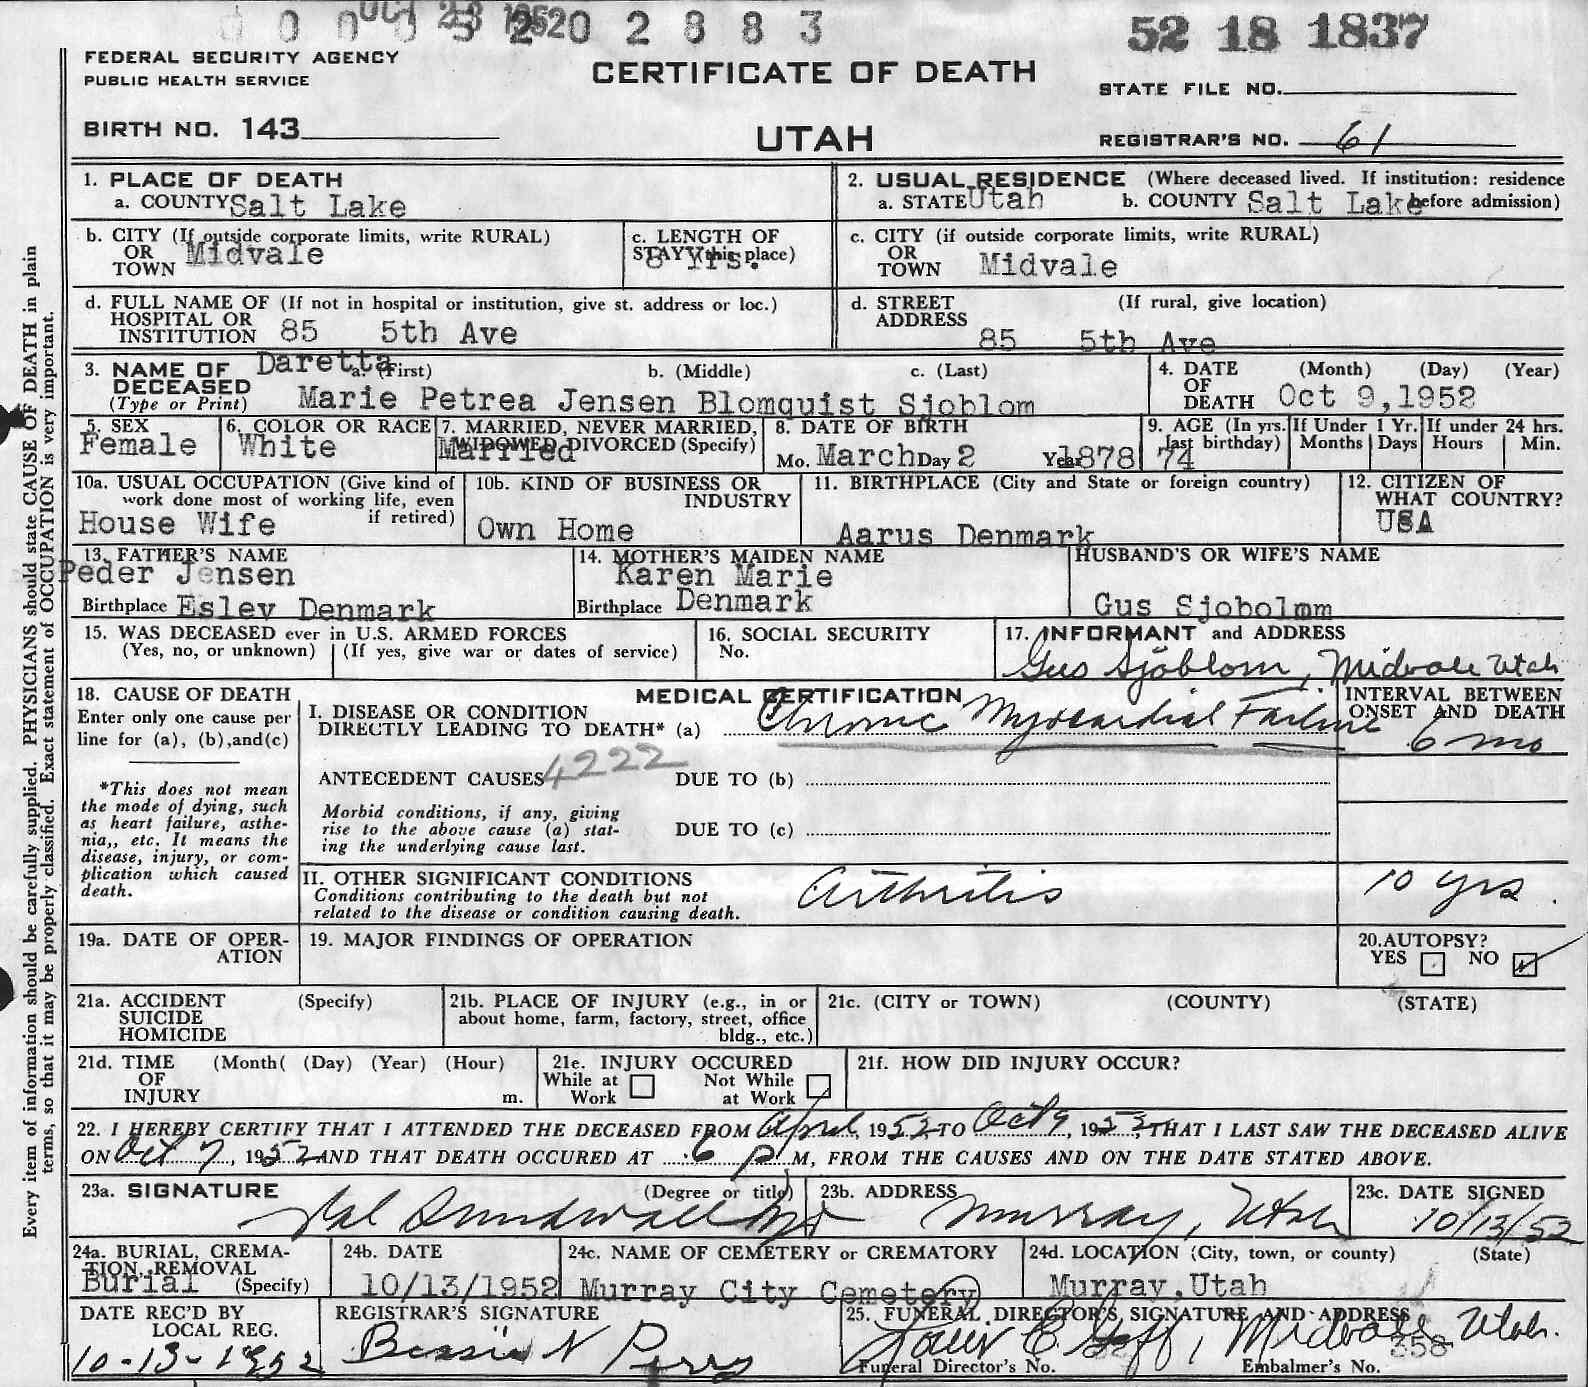 OCT 23 1952
0 0 0 5 2 0 2 8 8 3
52 18 1837
FEDERAL SECURITY AGENCY
PUBLIC HEALTH SERVICE
CERTIFICATE OF DEATH
STATE FILE NO.
BIRTH NO. 143
UTAH
REGISTRAR'S NO. 61
1. PLACE OF DEATH
a. COUNTY Salt Lake
2. USUAL RESIDENCE (Where deceased lived. If institution: residence
a. STATE Utah b. COUNTY Salt Lake before admission)
b. CITY (If outside corporate limits, write RURAL)
OR
TOWN Midvale
c. LENGTH OF
STAY (this place)
8 Yrs.
c. CITY (if outside corporate limits, write RURAL)
OR
TOWN Midvale
d. FULL NAME OF (If not in hospital or institution, give st. address or loc.)
HOSPITAL OR
INSTITUTION 85 5th Ave
d. STREET (If rural, give location)
ADDRESS
85 5th Ave
3. NAME OF DECEASED (Type or Print)
Daretta
a. (First) b. (Middle) c. (Last)
Marie Petrea Jensen Blomquist Sjoblom
4. DATE OF DEATH (Month) (Day) (Year)
Oct 9,1952
5. SEX
Female
6. COLOR OR RACE
White
7. MARRIED, NEVER MARRIED,
WIDOWED, DIVORCED (Specify)
Married
8. DATE OF BIRTH
Mo. March Day 2 Year 1878
9. AGE (In yrs. last birthday)
74
If Under 1 Yr.
Months Days
If under 24 hrs.
Hours Min.
10a. USUAL OCCUPATION (Give kind of
work done most of working life, even
if retired)
House Wife
10b. KIND OF BUSINESS OR
INDUSTRY
Own Home
11. BIRTHPLACE (City and State or foreign country)
Aarus Denmark
12. CITIZEN OF
WHAT COUNTRY?
USA
13. FATHER'S NAME
Peder Jensen
Birthplace Eslev Denmark
14. MOTHER'S MAIDEN NAME
Karen Marie
Birthplace Denmark
HUSBAND'S OR WIFE'S NAME
Gus Sjobolmm
15. WAS DECEASED ever in U.S. ARMED FORCES
(Yes, no, or unknown) (If yes, give war or dates of service)
16. SOCIAL SECURITY
No.
17. INFORMANT and ADDRESS
Gus Sjöblom, Midvale Utah
18. CAUSE OF DEATH
Enter only one cause per
line for (a), (b),and(c)
*This does not mean
the mode of dying, such
as heart failure, asthe-
nia,, etc. It means the
disease, injury, or com-
plication which caused
death.
MEDICAL CERTIFICATION
I. DISEASE OR CONDITION
DIRECTLY LEADING TO DEATH* (a) Chronic Myocardial Failure
INTERVAL BETWEEN
ONSET AND DEATH
6 mo
ANTECEDENT CAUSES 4222 DUE TO (b)
Morbid conditions, if any, giving
rise to the above cause (a) stat-
ing the underlying cause last.
DUE TO (c)
II. OTHER SIGNIFICANT CONDITIONS
Conditions contributing to the death but not
related to the disease or condition causing death.
Arthritis
10 yrs.
19a. DATE OF OPER-
ATION
19. MAJOR FINDINGS OF OPERATION
20. AUTOPSY?
YES NO
21a. ACCIDENT (Specify)
SUICIDE
HOMICIDE
21b. PLACE OF INJURY (e.g., in or
about home, farm, factory, street, office
bldg., etc.)
21c. (CITY or TOWN) (COUNTY) (STATE)
21d. TIME (Month( (Day) (Year) (Hour)
OF
INJURY m.
21e. INJURY OCCURED
While at Work Not While at Work
21f. HOW DID INJURY OCCUR?
22. I HEREBY CERTIFY THAT I ATTENDED THE DECEASED FROM April, 1952, TO Oct 9, 1952, THAT I LAST SAW THE DECEASED ALIVE
ON Oct 7, 1952 AND THAT DEATH OCCURED AT 6 P M, FROM THE CAUSES AND ON THE DATE STATED ABOVE.
23a. SIGNATURE (Degree or title)
Val Sundwall MD
23b. ADDRESS
Murray, Utah
23c. DATE SIGNED
10/13/52
24a. BURIAL, CREMA-
TION, REMOVAL
(Specify)
Burial
24b. DATE
10/13/1952
24c. NAME OF CEMETERY or CREMATORY
Murray City Cemetery
24d. LOCATION (City, town, or county) (State)
Murray,Utah
DATE REC'D BY
LOCAL REG.
10-13-1952
REGISTRAR'S SIGNATURE
Bessie N
25. FUNERAL DIRECTOR'S SIGNATURE AND ADDRESS
Goff, Midvale Utah.
Funeral Director's No. Embalmer's No. 358
Every item of information should be carefully supplied. PHYSICIANS should state CAUSE OF DEATH in plain
terms, so that it may be properly classified. Exact statement of OCCUPATION is very important.